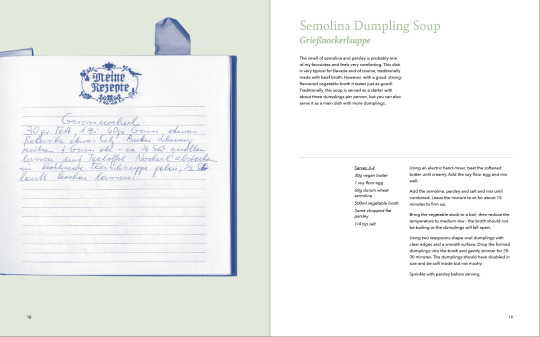 Meine
Rezepte
Griesnockerl
30 gr Fett, 1 Ei 60 gr Gries, etwas
Petersilie etwas Salz. Butter
rühren Gries
lassen und Teelöffel Nockerl abstechen
in kochende Fleischsuppe geben,
kochen lassen
18
Semolina Dumpling Soup
Grießnockerlsuppe
The smell of semolina and parsley is probably one
of my favourites and feels very comforting. This dish
is very typical for Bavaria and of course, traditionally
made with beef broth. However, with a good, strong-
flavoured vegetable broth it tastes just as good!
Traditionally, this soup is served as a starter with
about three dumplings per person, but you can also
serve it as a main dish with more dumplings.
Serves 3-4
30g vegan butter
1 soy flour egg
60g durum wheat
semolina
500ml vegetable broth
Some chopped flat
parsley
1/4 tsp salt
Using an electric hand-mixer, beat the softened
butter until creamy. Add the soy flour egg and mix
well.
Add the semolina, parsley and salt and mix until
combined. Leave the mixture to sit for about 15
minutes to firm up.
Bring the vegetable stock to a boil, then reduce the
temperature to medium-low - the broth should not
be boiling or the dumplings will fall apart.
Using two teaspoons shape oval dumplings with
clear edges and a smooth surface. Drop the formed
dumplings into the broth and gently simmer for 25-
30 minutes. The dumplings should have doubled in
size and be soft inside but not mushy.
Sprinkle with parsley before serving.
19